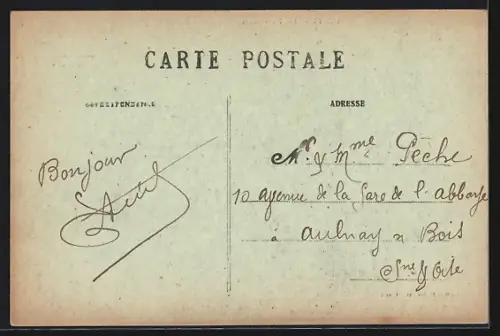 CARTE POSTALE
CORRESPONDANCE
ADRESSE
Bonjour
Mr & Mme Pêche
10 avenue de la Gare de l'abbaye
à aulnay s Bois
Sne & Oise